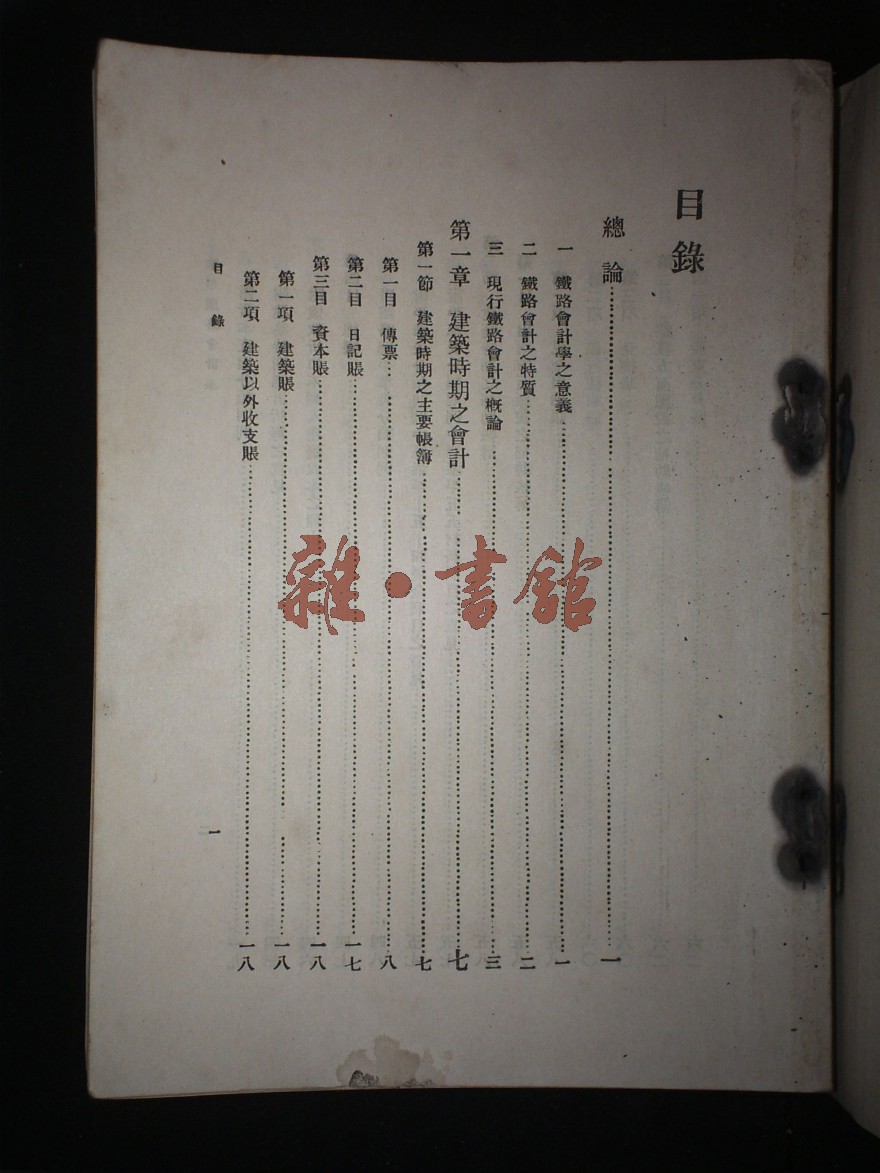 目錄
總論……一
一 鐵路會計學之意義……一
二 鐵路會計之特質……二
三 現行鐵路會計之概論……三
第一章 建築時期之會計……七
第一節 建築時期之主要帳簿……七
第一目 傳票……八
第二目 日記賬……一七
第三目 資本賬……一八
第一項 建築賬……一八
第二項 建築以外收支賬……一八
目錄
一
雜·書館